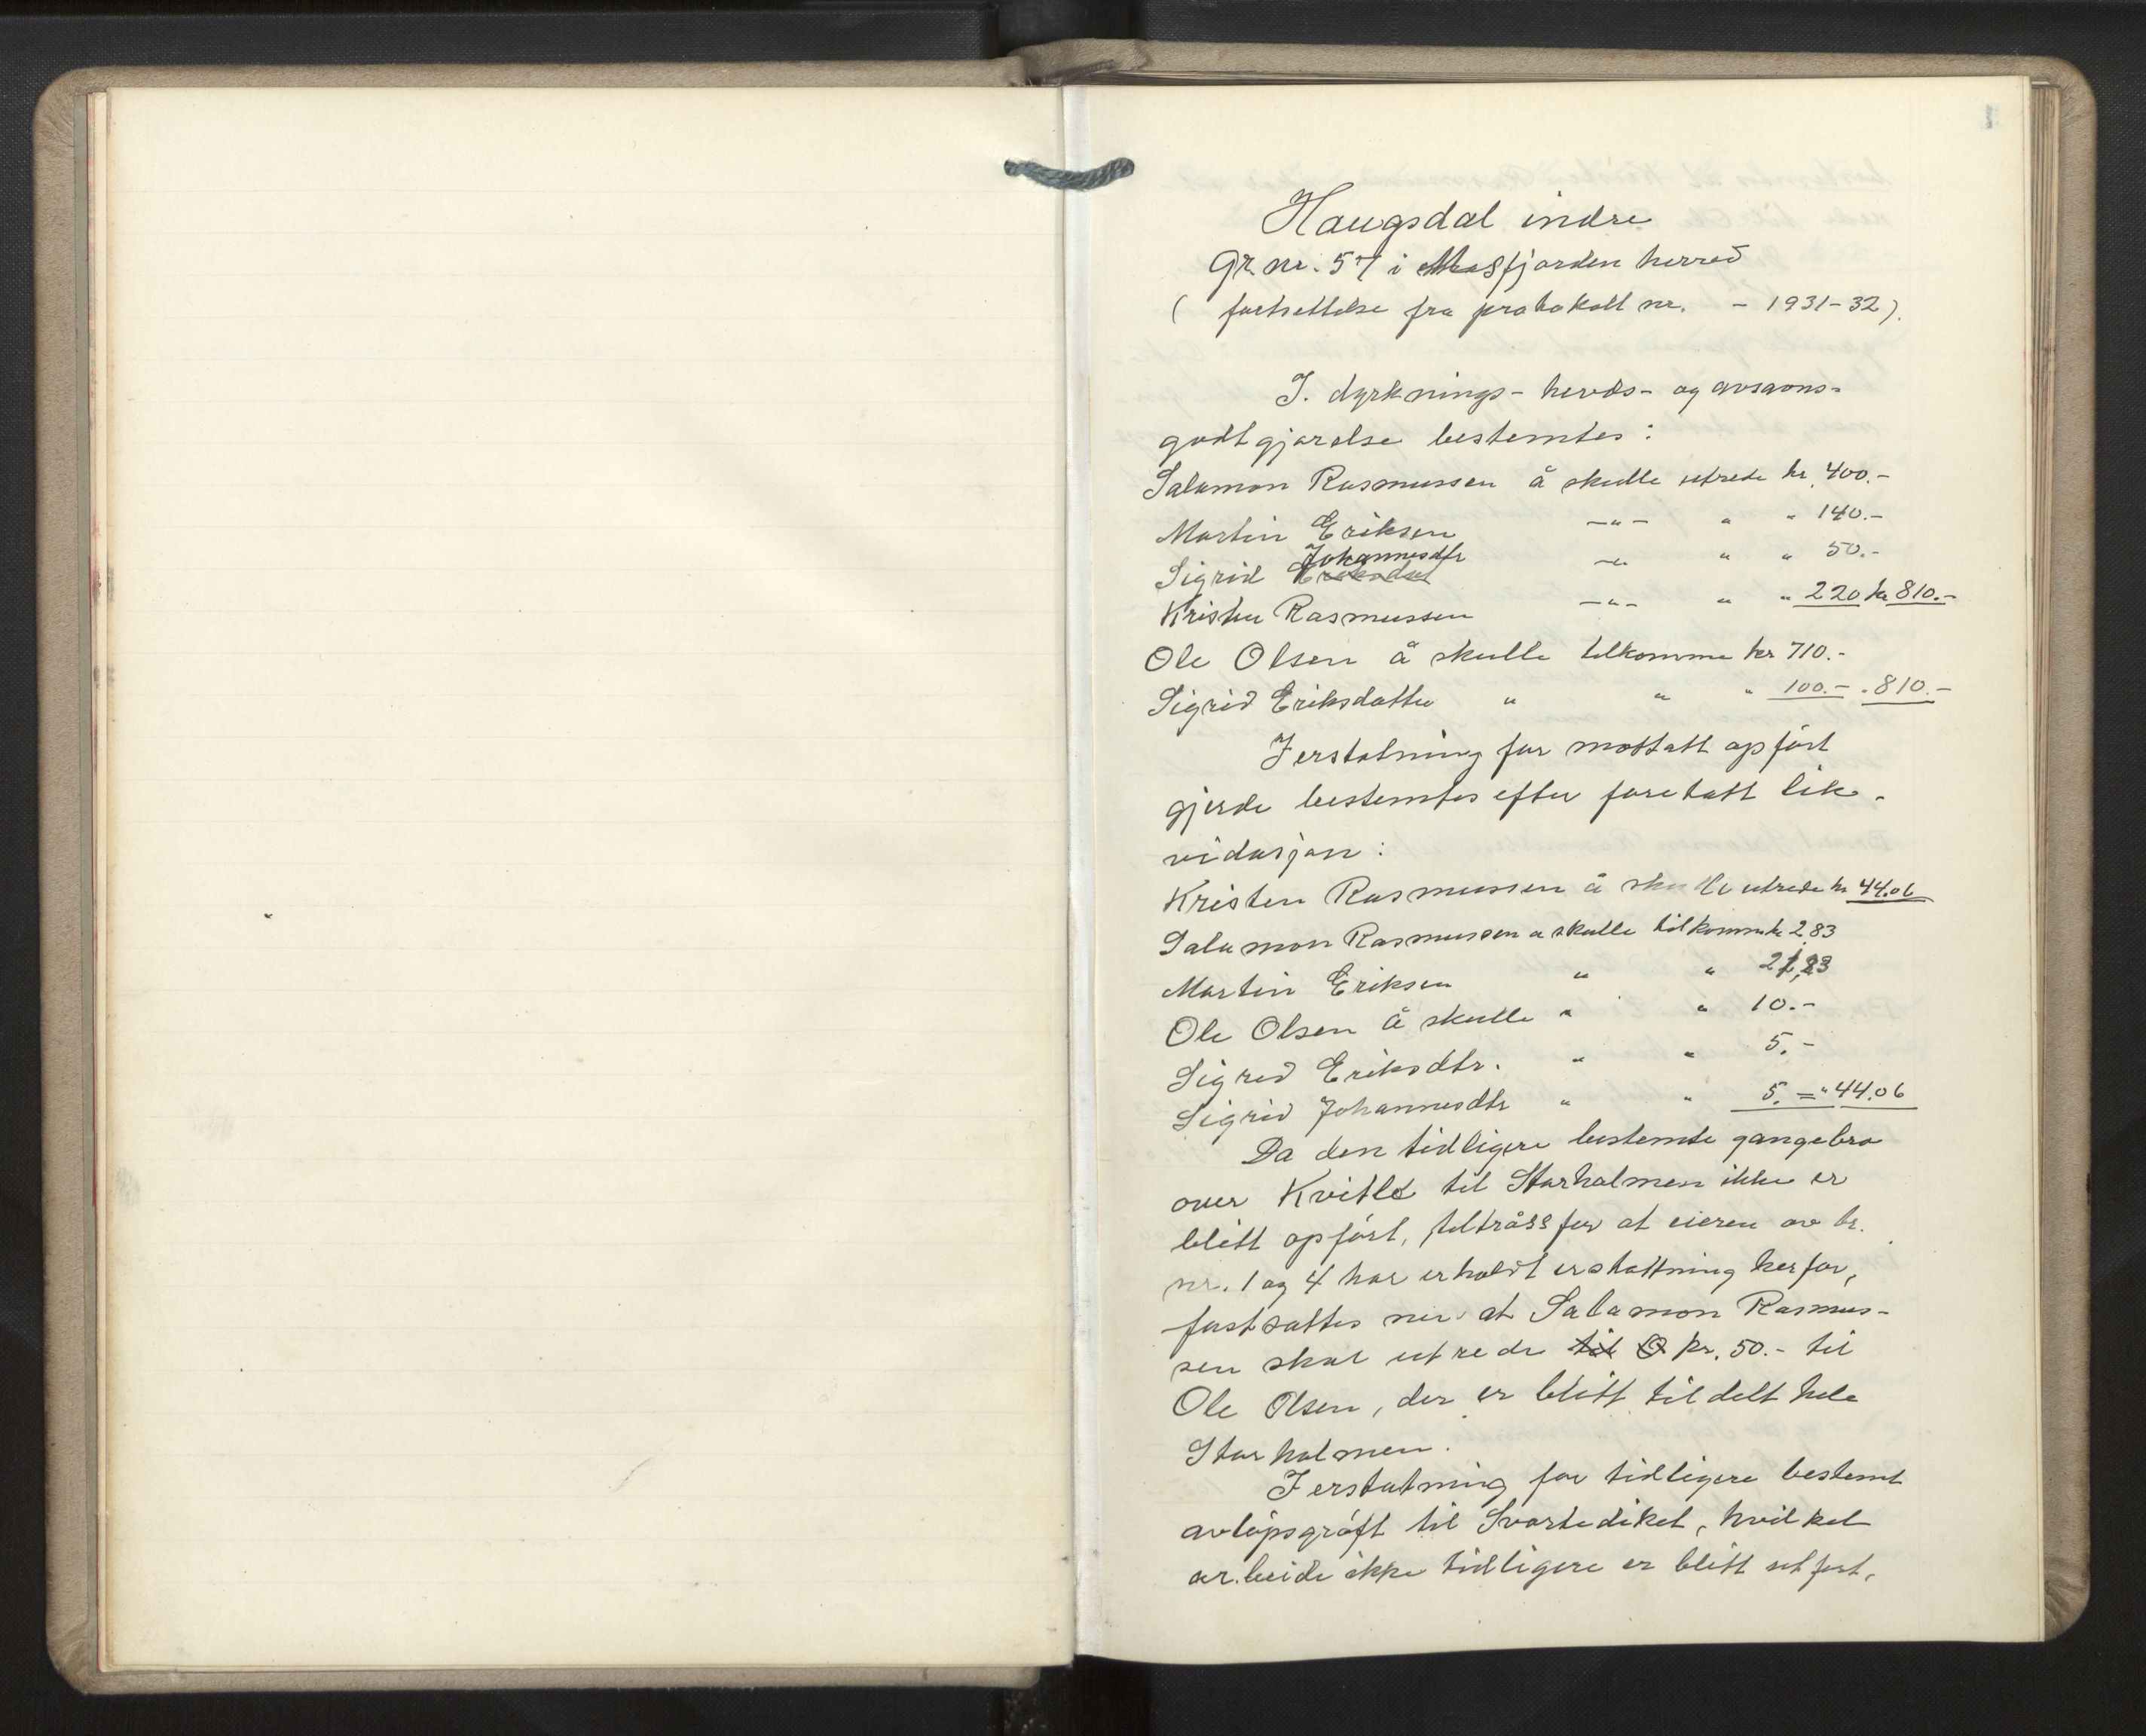 Haugsdal indre
Gr. nr. 57 i Masfjorden herred
( fortsettelse fra protokoll nr. - 1931-32).
I. dyrknings- hevds- og avsavns-
godtgjørelse bestemtes:
Salamon Rasmussen å skulle utrede kr. 400.-
Martin Eriksen -"- " " 140.-
Sigrid Johannesdtr -" " " 50.-
Kristen Rasmussen -"- " " 220 kr 810.-
Ole Olsen å skulle tilkomme kr 710.-
Sigrid Eriksdatter " " " 100.- " 810.-
I erstatning for mottatt opført
gjerde bestemtes efter foretatt lik-
vidasjon:
Kristen Rasmussen å skulle utrede kr 44.06
Salamon Rasmussen a skulle tilkomme kr 2,83
Martin Eriksen " " 21,23
Ole Olsen å skulle " " 10.-
Sigrid Eriksdtr. " " 5.-
Sigrid Johannesdtr " " 5.= " 44.06
Da den tidligere bestemte gangebro
over Kvitlo til Storholmen ikke er
blitt opført, tiltråss for at eieren av br.
nr. 1 og 4 har erholdt erstattning herfor,
fastsattes nu at Salamon Rasmus-
sen skal utrede til O kr. 50.- til
Ole Olsen, der er blitt tildelt hele
Storholmen.
I erstatning for tidligere bestemt
avløpsgrøft til Svartediket, hvilket
arbeide ikke tidligere er blitt utført,